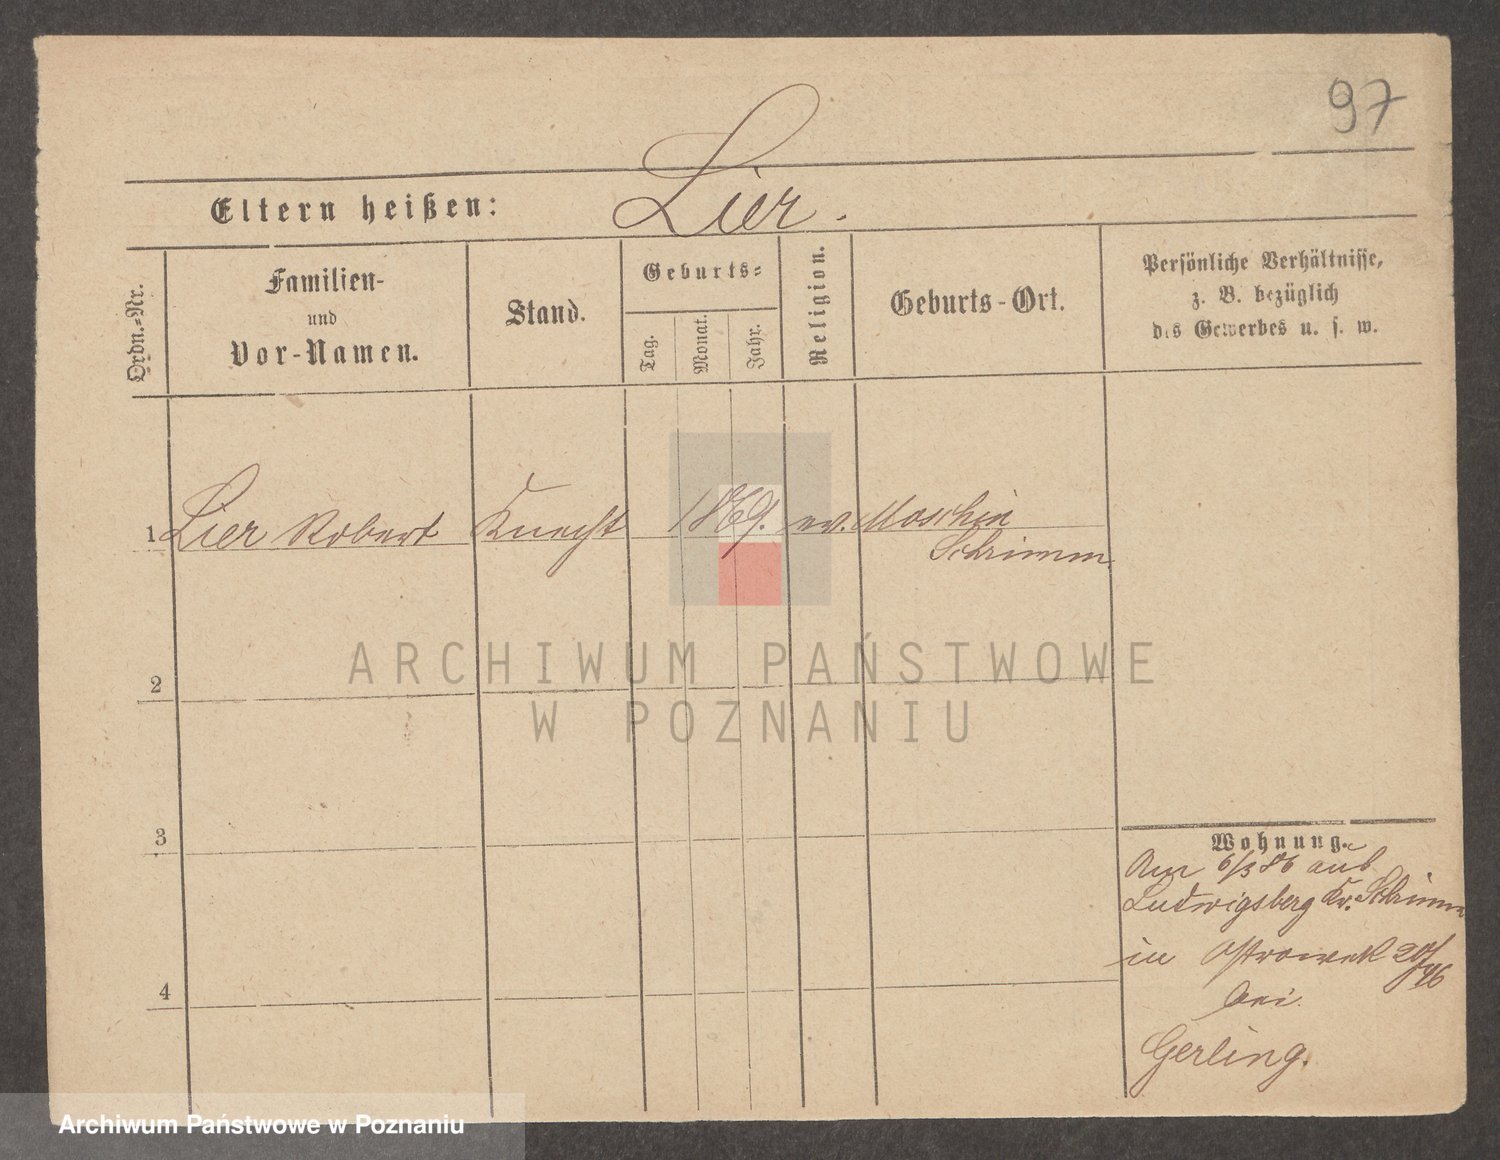 97
Eltern heißen: Lier.
Ordn.=Nr.
Familien-
und
Vor-Namen.
Stand.
Geburts=
Tag.
Monat.
Jahr.
Religion.
Geburts-Ort.
Persönliche Verhältnisse,
z. B. bezüglich
des Gewerbes u. s. w.
1 Lier Robert Knecht 1869. ev. Moschin
Schrimm.
ARCHIWUM PAŃSTWOWE
W POZNANIU
2
3
4
Wohnung.
Am 6/3 86 aus
Ludwigsberg Kr. Schrimm
in Ostrowek
bei
Gerling.
Archiwum Państwowe w Poznaniu